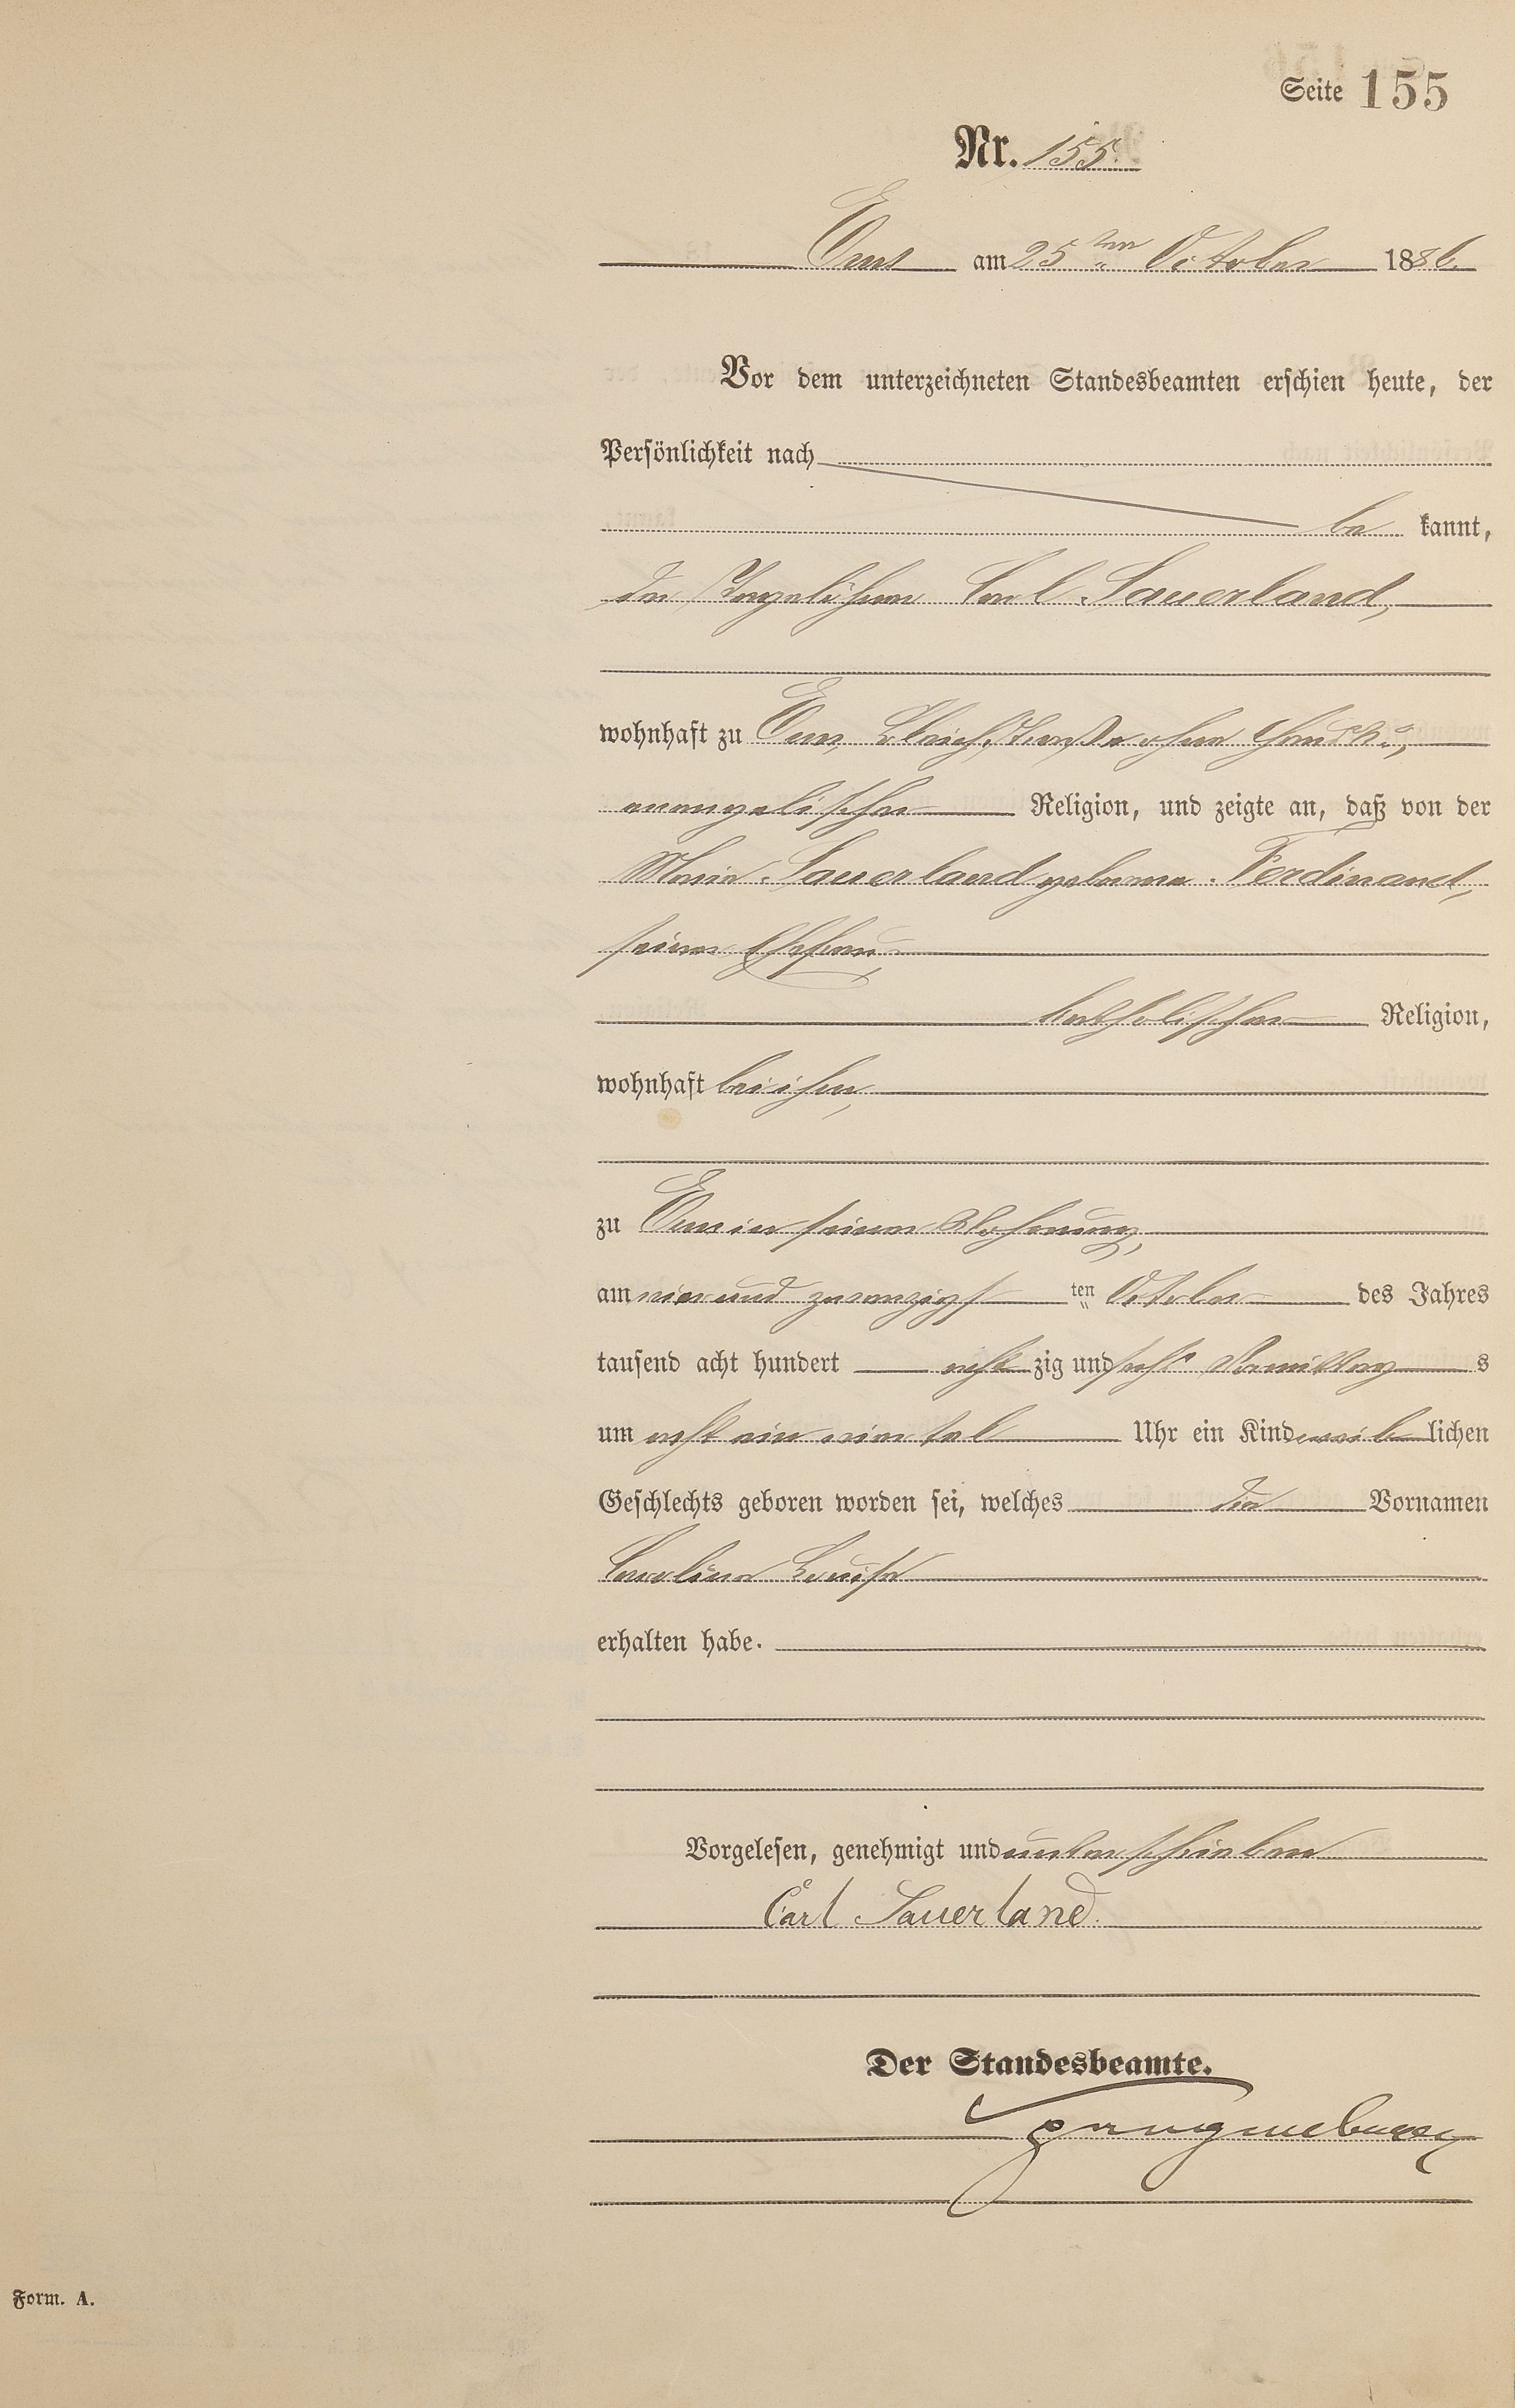 Seite 155
Nr. 155.
Ems am 25ten October 1886.
Vor dem unterzeichneten Standesbeamten erschien heute, der
Persönlichkeit nach
be kannt,
der Tagelöhner Carl Sauerland,
wohnhaft zu Ems, Bleichstraße ohne
evangelischer Religion, und zeigte an, daß von der
Maria Sauerland geborene Ferdinand,
seiner Ehefrau,
katholischer Religion,
wohnhaft bei ihm,
zu Ems in seiner Wohnung,
am vierund zwanzigsten October des Jahres
tausend acht hundert acht zig und sechs Vormittags
um acht ein viertel Uhr ein Kind weiblichen
Geschlechts geboren worden sei, welches die Vornamen
Caroline Louise
erhalten habe.
Vorgelesen, genehmigt und unterschrieben
Carl Sauerland.
Der Standesbeamte.
Form. A.